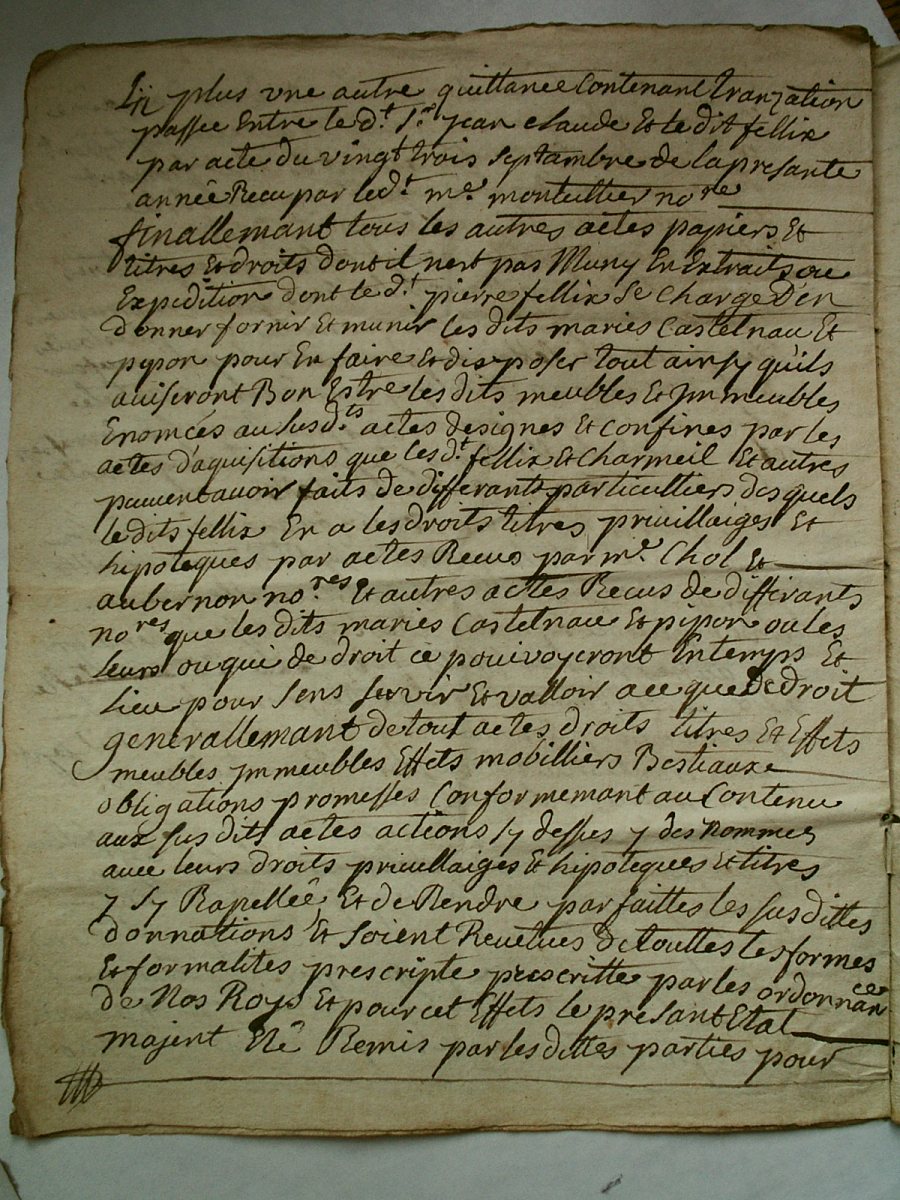 En plus une autre quittance Contenant tranzation
passée Entre le d.t S.r jean claude Et le dit fellix
par acte du vingt trois septambre de la presante
année Recu par led.t m.e monteillier no.re
finallemant tous les autres actes papiers Et
titres Et droits dont il nest pas Muny En Extraits ou
Expedition dont le d.t pierre fellix Se charge D'en
donner fornir Et munir les dits mariés Castelnau Et
pipon pour En faire Et disposer tout ainsy qu'ils
auiseront Bon Estre les dits meubles Et Jmmeubles
Enomcés au susd.ts actes designes Et confines par les
actes d'aquisitions que les d.t fellix Et Charmeil Et autres
peuuent auoir faits de differants particulliers des quels
le dits fellix En a les droits titres priuillaiges Et
hipoteques par actes Recus par m.e Chol Et
aubernon no.res Et autres actes Recus de differants
no.res que les dits mariés Castelnau Et pipon ou les
leurs ou qui de droit ce pouivoyeront En temps Et
lieu pour sens servir Et valloir ace que De droit
generallemant de tout actes droits titres Et Effets
meubles ymmeubles Effets mobilliers Bestiaux
obligations promesses Conformemant au Contenu
aux sus dits actes actions sy dessus y des nommes
auec leurs droits priuillaiges Et hipoteques Et titres
y sy Rapellée Et de Rendre parfaittes les susdittes
donnations Et soient Reuetues de touttes les formes
Et formalites prescripte prescritte par les ordonnances
de Nos Roys Et pour cet Effets le presant Etat
majent Eté Remis par les dittes parties pour